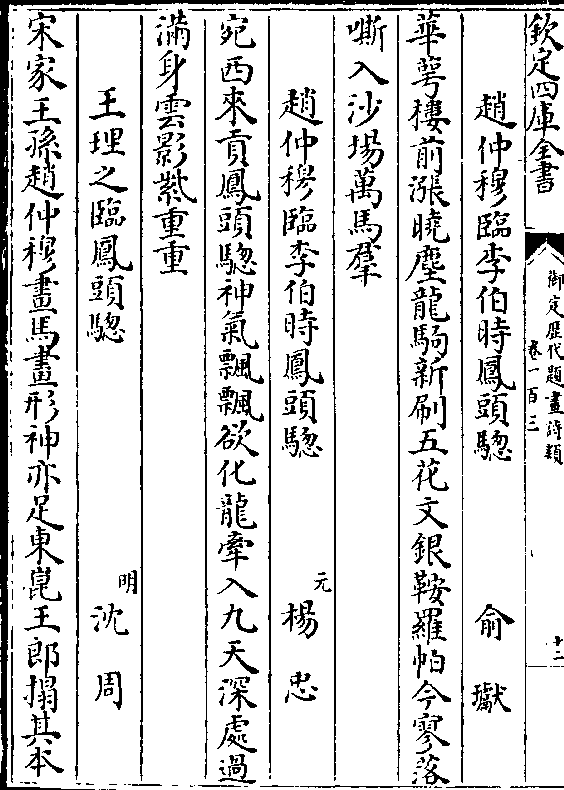 欽定四庫全書
御定歷代題畫詩類
卷一百三
十二
趙仲穆臨李伯時鳳頭驄 俞瓛
華萼樓前漲曉塵龍駒新刷五花文銀鞍羅帕今寥落
嘶入沙場萬馬羣
趙仲穆臨李伯時鳳頭驄 元 楊忠
宛西來貢鳳頭驄神氣飄飄欲化龍牽入九天深處過
滿身雲影紫重重
王理之臨鳳頭驄 明 沈周
宋家王孫趙仲穆畫馬畫形神亦足東崑王郎搨其本